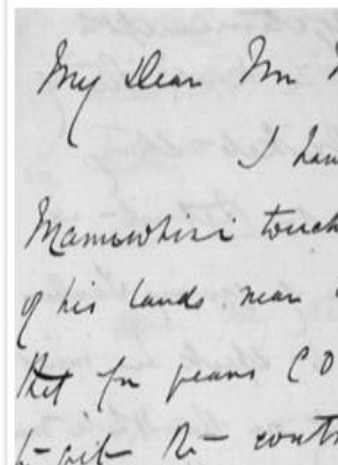 My Dear Mr M
I hav
Manuwhiri touch
of his lands near
that for years
contr